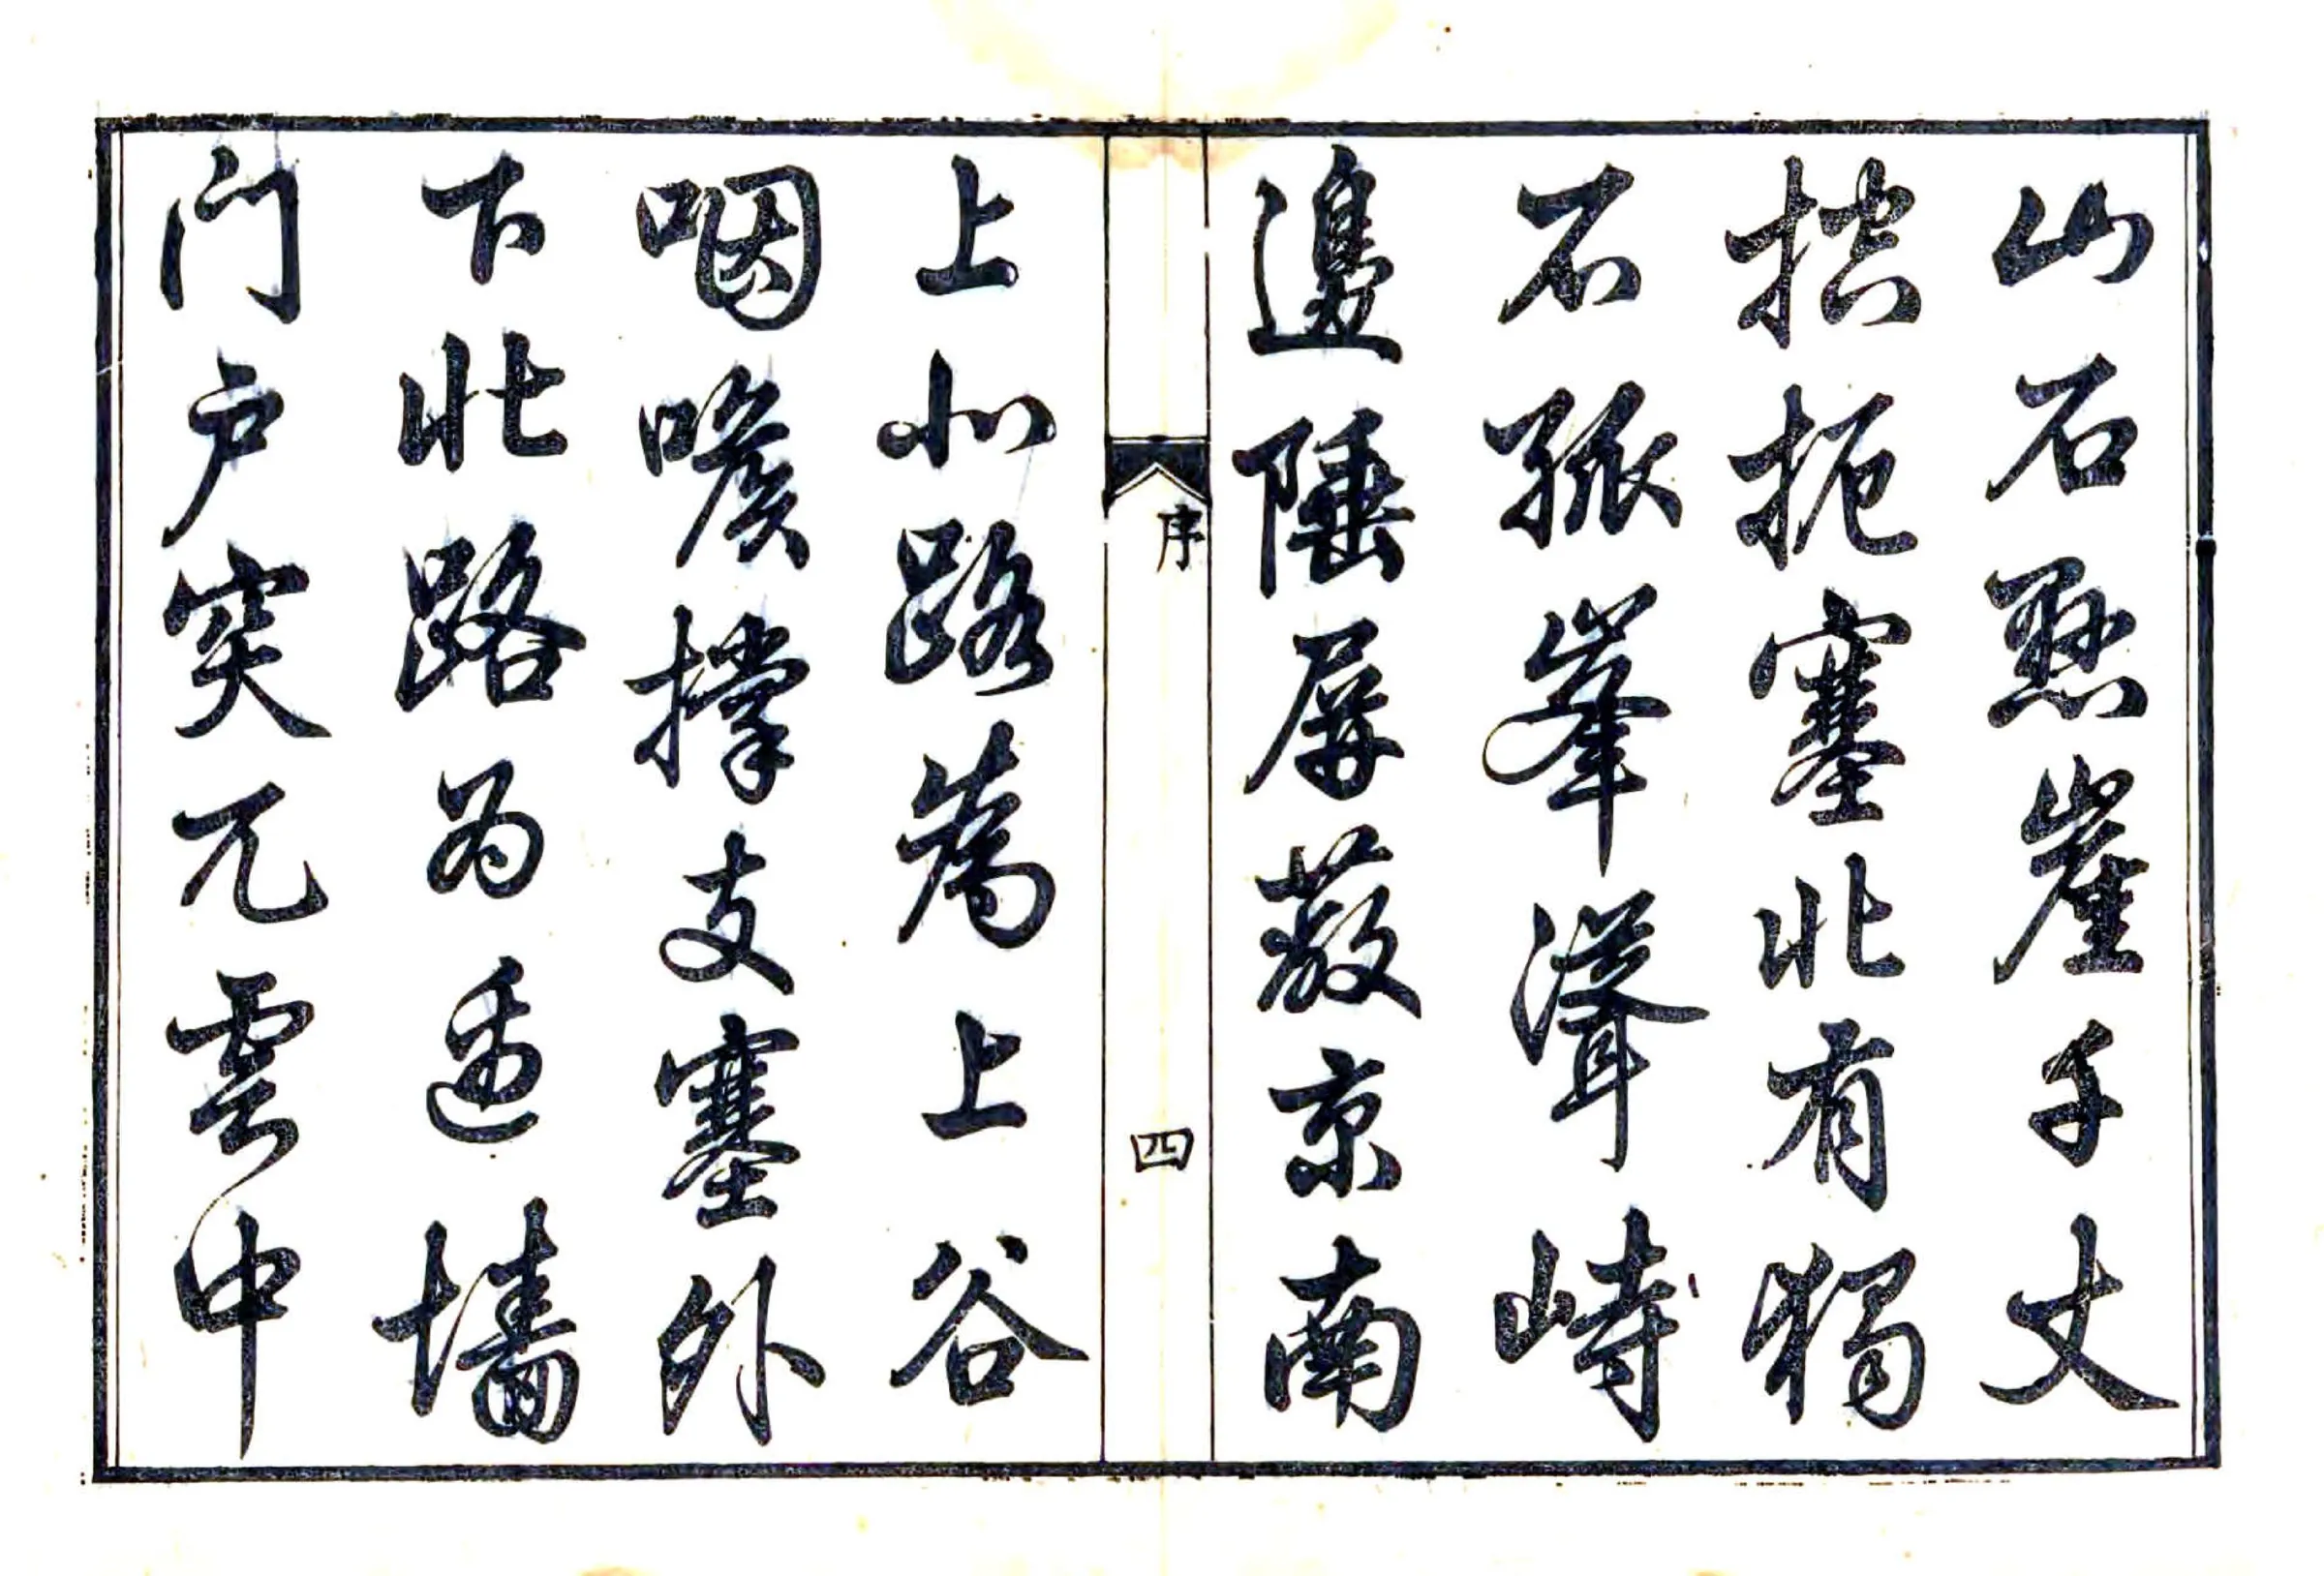 山石懸崖千丈
拱扼塞北有獨
石孤峯聳峙
邊陲屏蔽京南
序 四
上北路為上谷
咽喉撐支塞外
下北路为邊墻
門戶突兀雲中